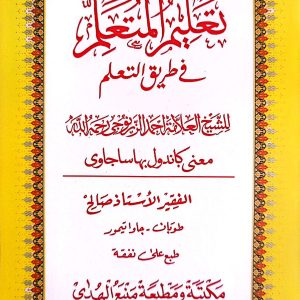 تعليم المتعلم
في طريق التعلم
للشيخ العلامة احمد الزرنوجي رحمه الله
معنى كاندول بهاسا جاوي
الفقير الأستاذ صالح
طوبان - جاوا تيمور
طبع على نفقة
مكتبة ومطبعة منبع الهدى